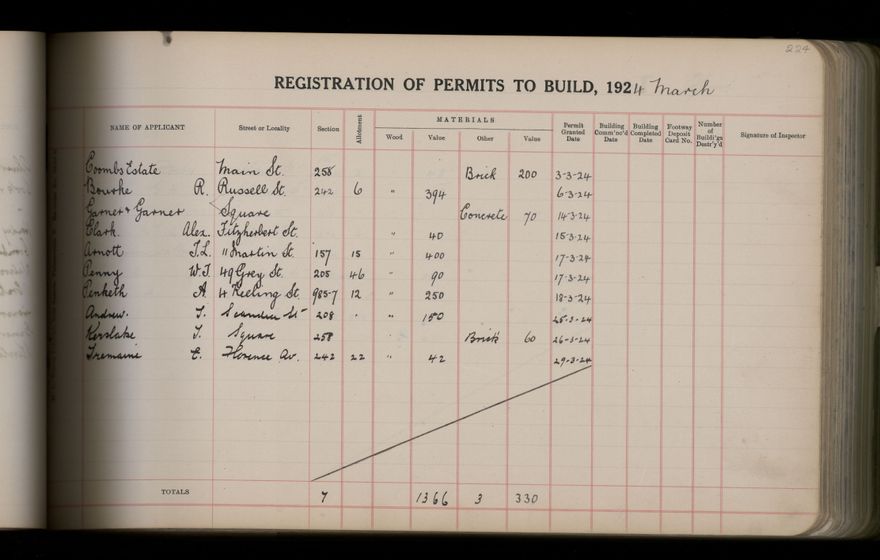 224
REGISTRATION OF PERMITS TO BUILD, 1924 March
NAME OF APPLICANT Street or Locality Section Allotment MATERIALS Wood Value Other Value Permit Granted Date Building Comm'nc'd Date Building Completed Date Footway Deposit Card No. Number of Buildi'gs Destr'y'd Signature of Inspector
Coombs Estate Main St. 258 Brick 200 3-3-24
Bourke R. Russell St. 242 6 " 394 6-3-24
Garner & Garner Square Concrete 70 14-3-24
Clark. Alex. Fitzherbert St. " 40 15-3-24
Arnott J.L. 11 Martin St. 157 15 " 400 17-3-24
Penny W.J. 49 Grey St. 205 46 " 90 17-3-24
Penketh A. 4 Keeling St. 985-7 12 " 250 18-3-24
Andrew. T. St 208 " 150 25-3-24
Kerslake T. Square 258 Brick 60 26-3-24
Tremaine E. Florence Av. 242 22 " 42 29-3-24
TOTALS 7 1366 3 330